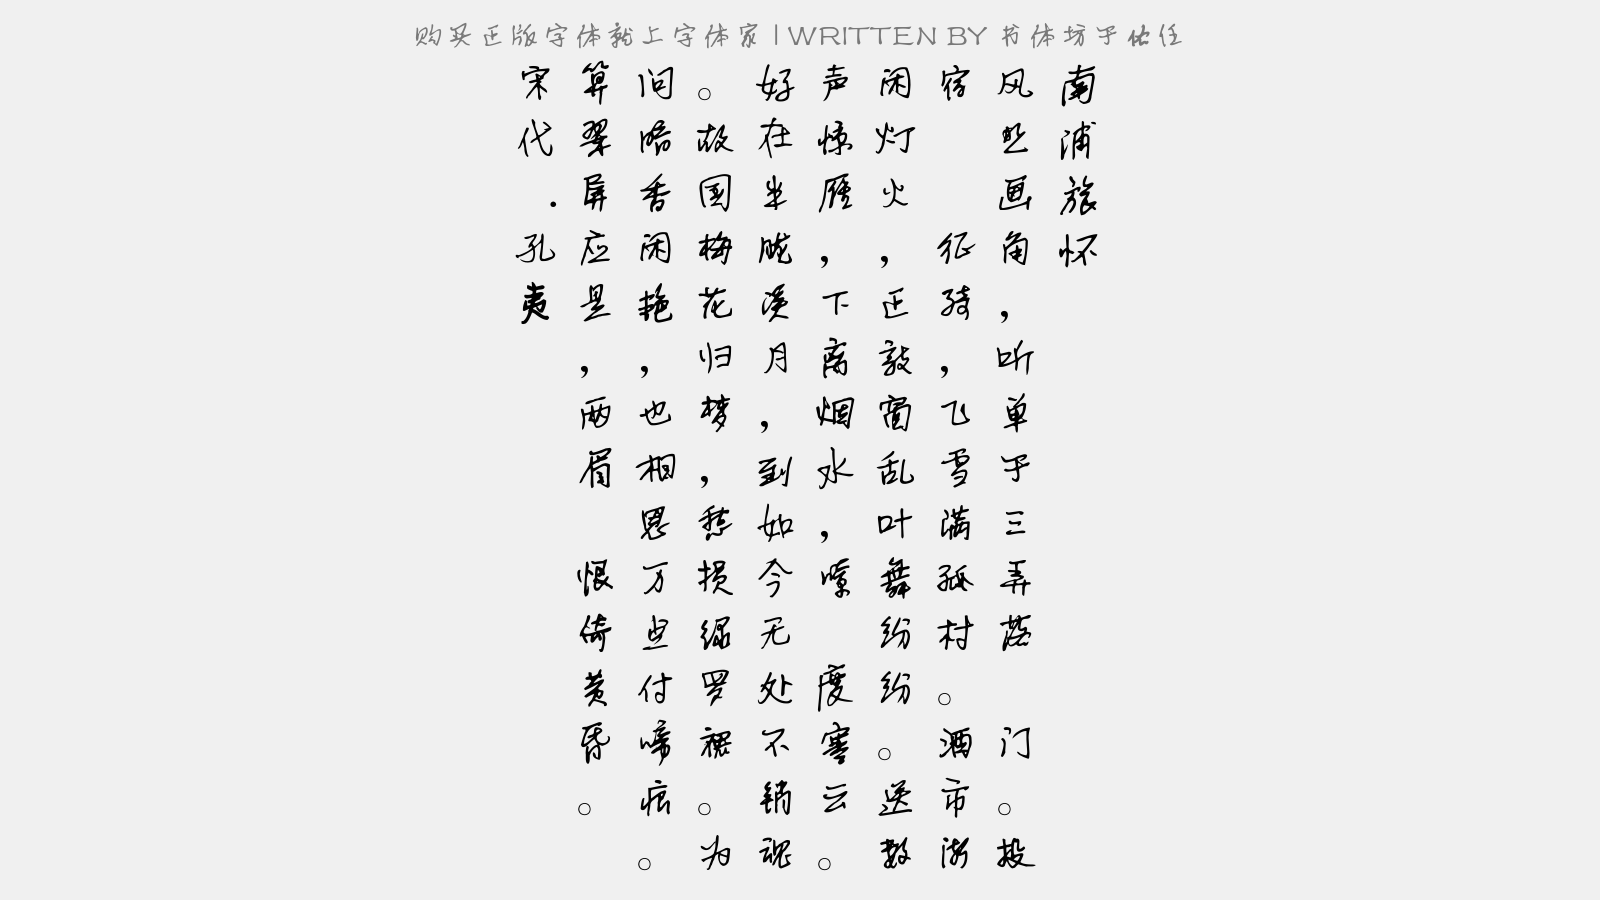 购买正版字体就上字体家 | WRITTEN BY 书体坊于佑任
南浦旅怀
风悲画角，听单于三弄落 门。投
宿 征骑，飞雪满孤村。酒市渐
闲灯火，正敲窗乱叶舞纷纷。送数
声惊雁，下离烟水，嘹 度寒云。
好在半胧溪月，到如今无处不销魂
。故国梅花归梦，愁损绿罗裙。为
问暗香闲艳，也相思万点付啼痕。
算翠屏应是，两眉 恨倚黄昏。
宋代.孔夷